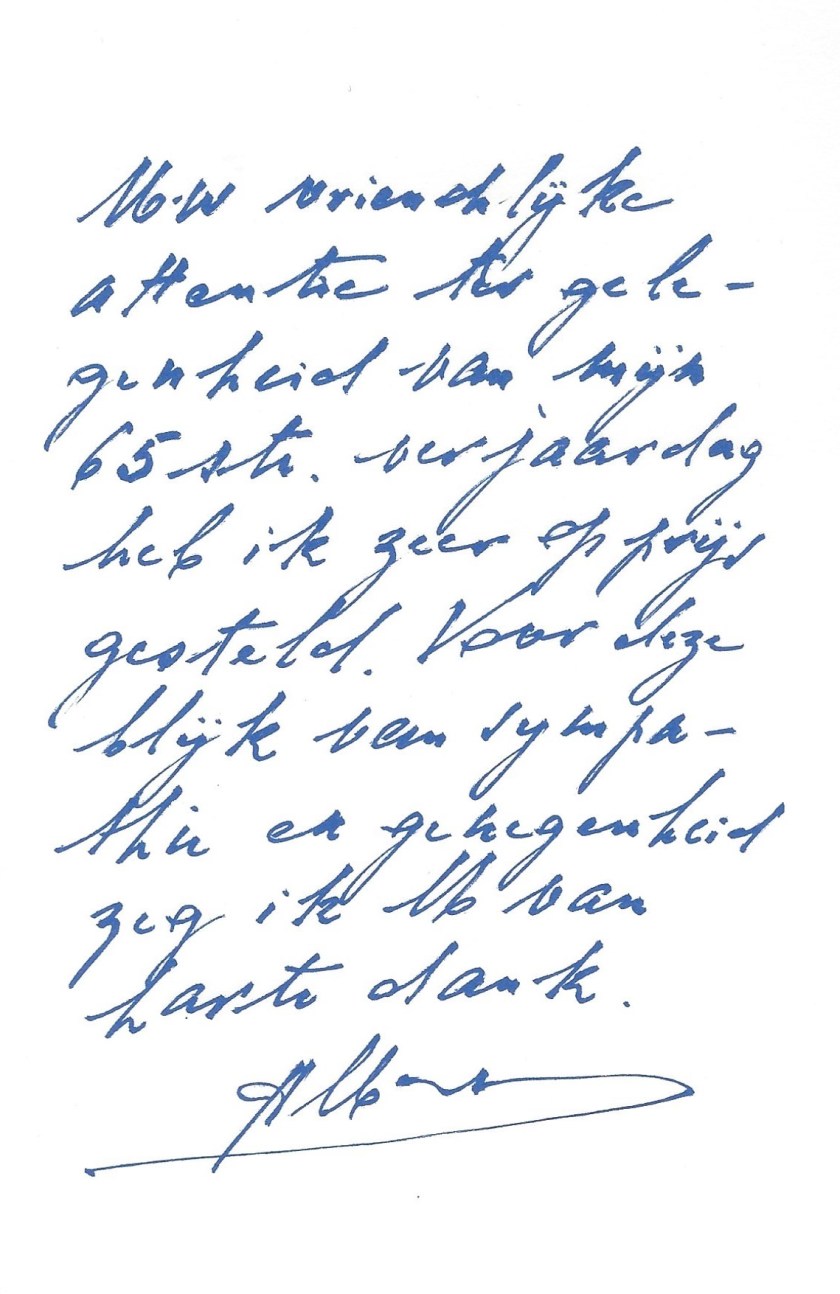 Uw vriendelijke
attentie ter gele-
genheid van mijn
65ste. verjaardag
heb ik zeer op prijs
gesteld. Voor deze
blijk van sympa-
thie en genegenheid
zeg ik U van
harte dank.
Albert